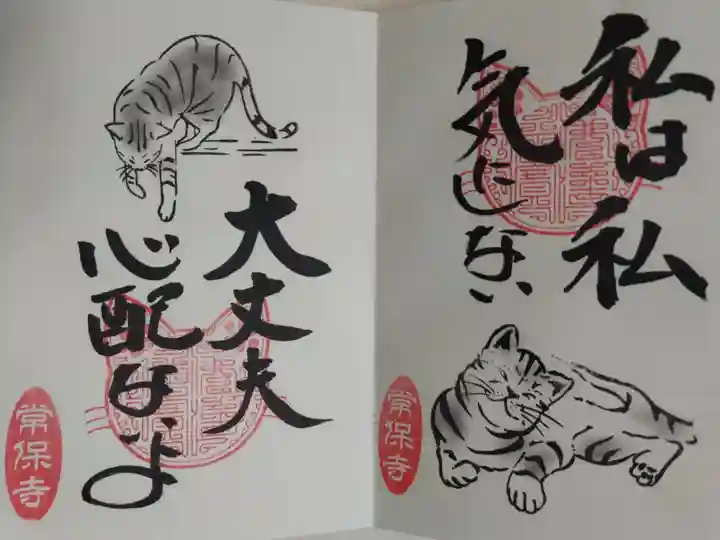 私は私
気にしない
常保寺
大丈夫
心配すなよ
常保寺